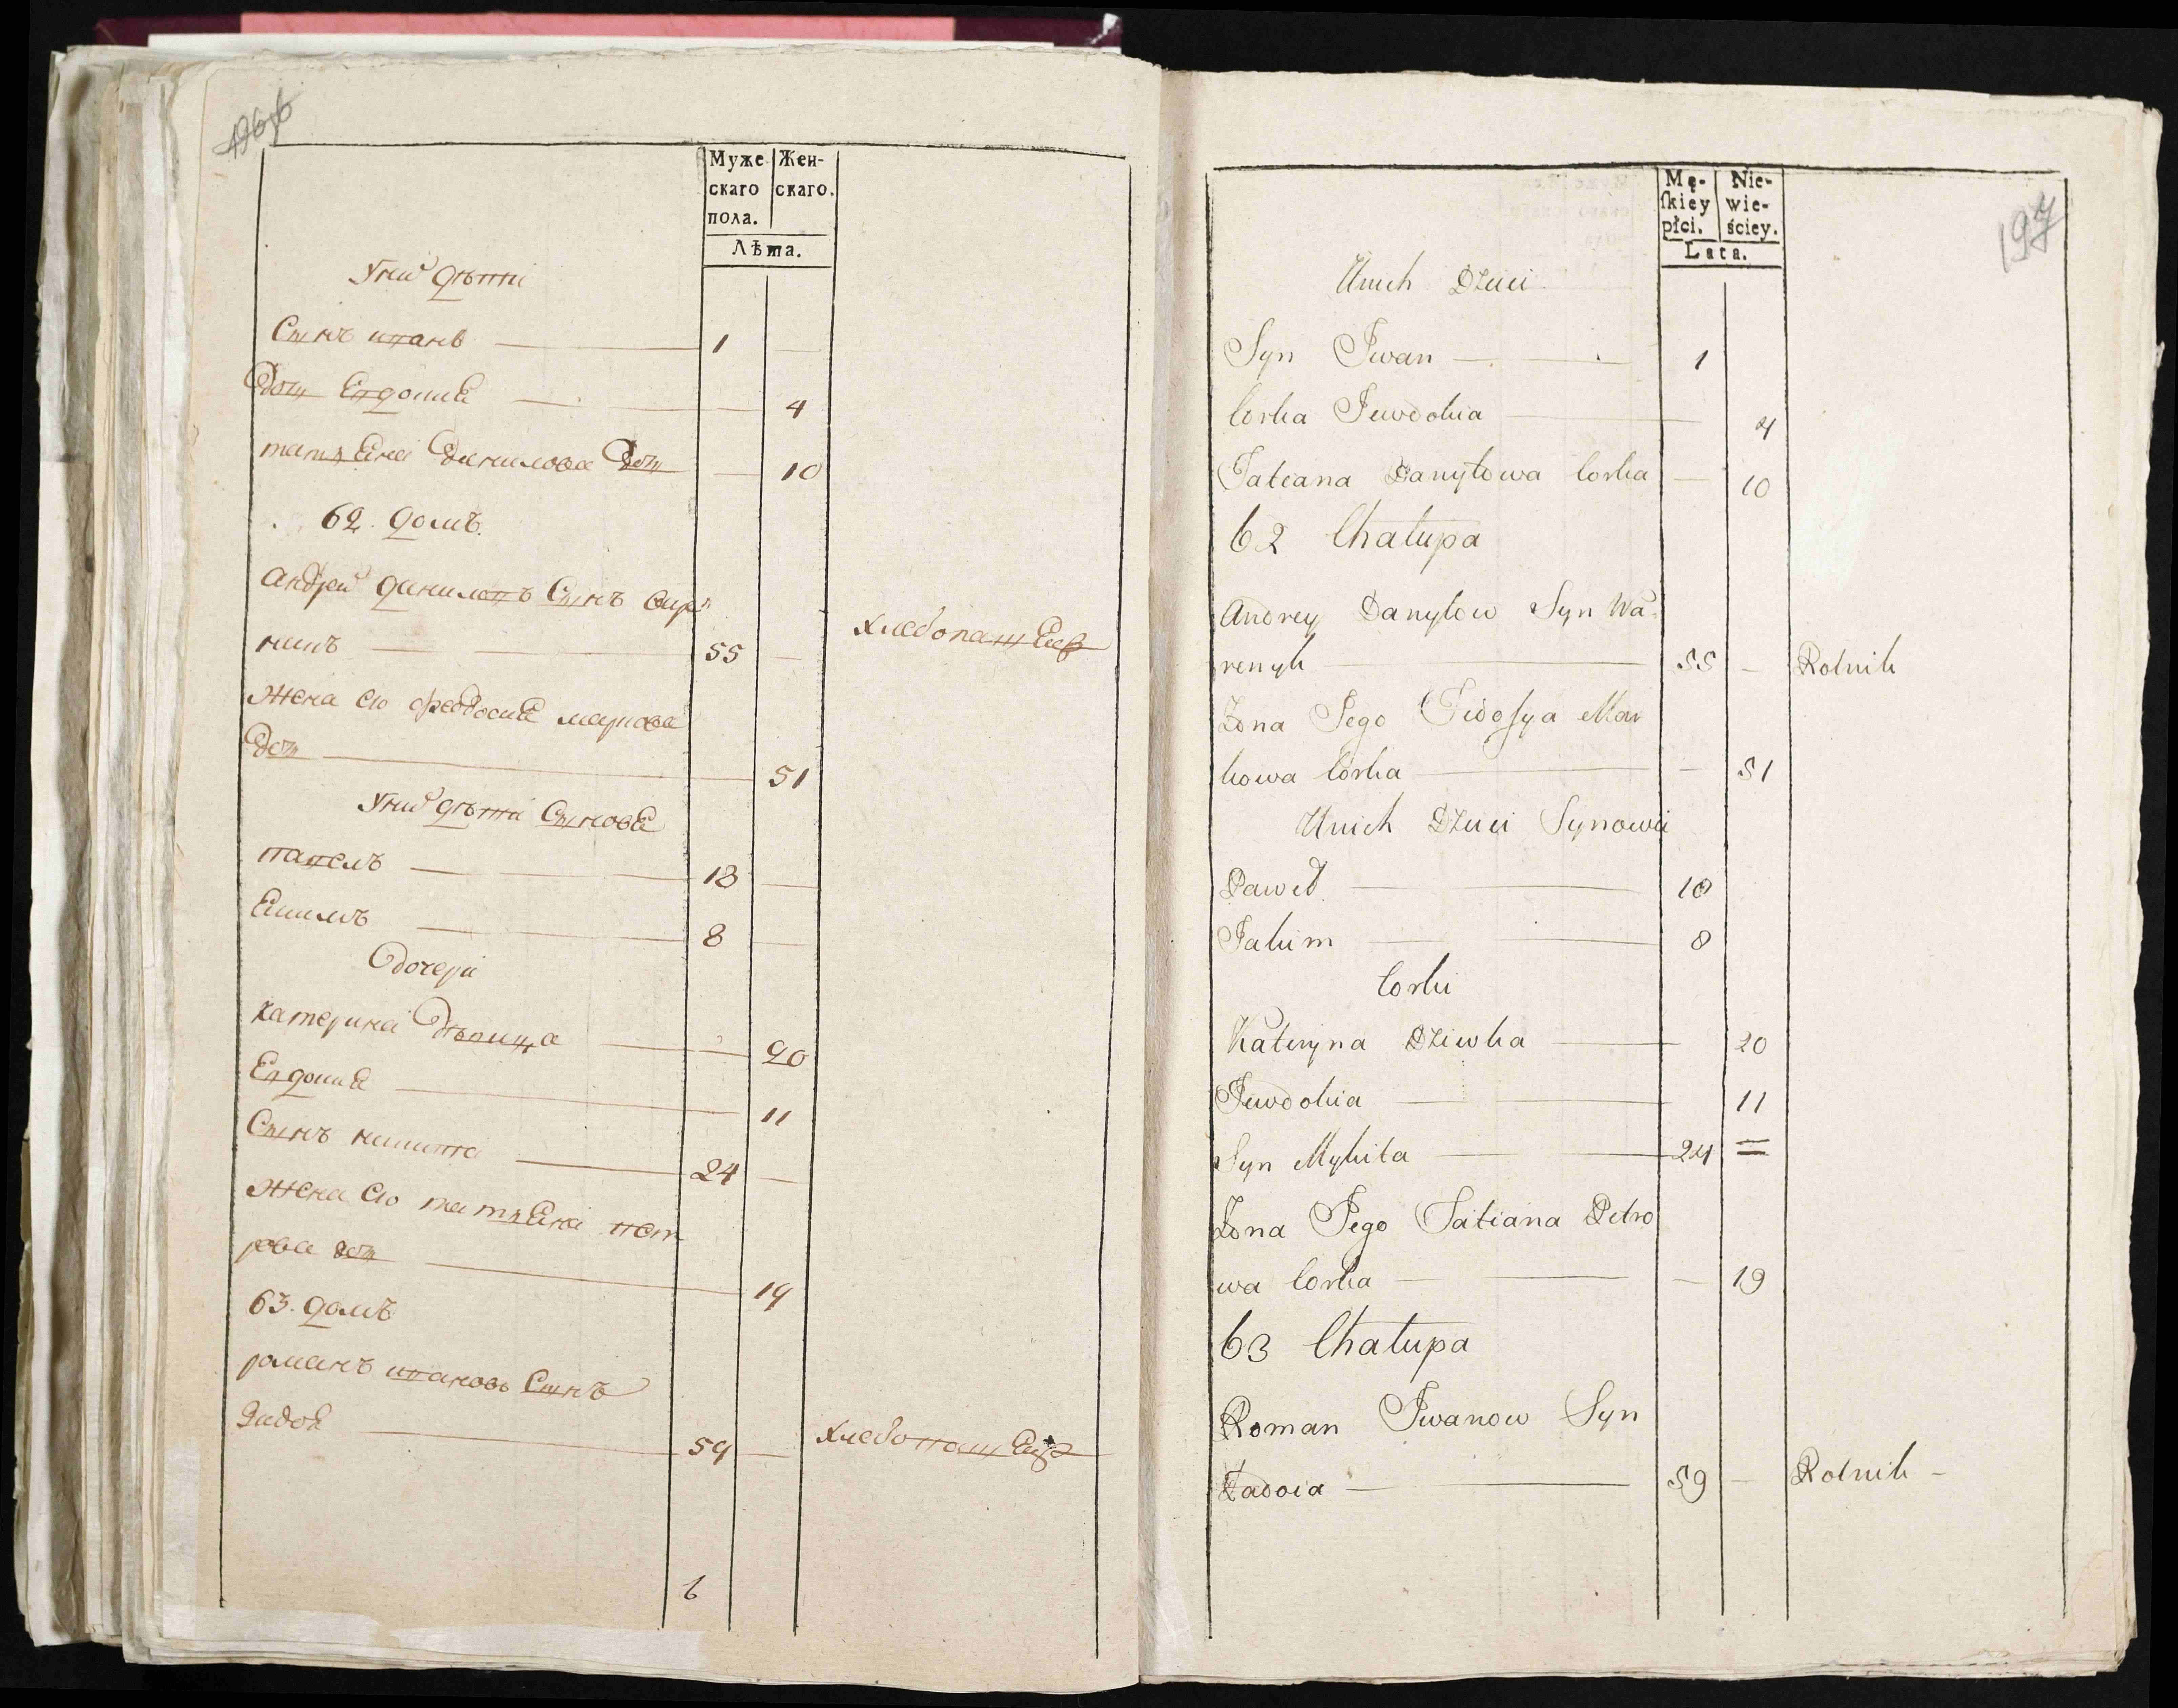 Муже
скаго
пола.
Жен-
скаго.
Лѣта.
Унихъ дѣти
Сынъ иванъ 1
Доч Евдокиѣ 4
татяна данилова Доч 10
62. домъ.
андрей данилевъ Сынъ
55 хлебопашец
жена ею феодосиѣ маркова
Доч 51
Унихъ дѣти Синовѣ
павелъ 18
Екимъ 8
дочери
катерина дѣвица 20
Евдокиѣ 11
Сынъ никита 24
жена ею татяна пет
рова доч 19
63. домъ
романъ ивановъ Сынъ
Задоя 59 хлебопашец
6
197
Mę-
ſkiey
płci.
Nie-
wie-
ściey.
Lata.
Unich Dzieci
Syn Jwan 1
Corka Jewdokia 4
Tateana Danyłowa Corka 10
62 Chałupa
Andrey Danyłow Syn Wa
renyk 55 Rolnik
Zona Jego Fidosya Mar
kowa Corka 51
Unich Dzieci Synowie
Paweł 18
Jakim 8
Corki
Kateryna Dziwka 20
Jewdokia 11
Syn Mykita 24
Zona Jego Tatiana Petro
wa Corka 19
63 Chałupa
Roman Jwanow Syn
Zadoia 59 Rolnik